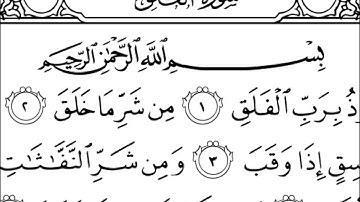 سورة الفلق
بِسْمِ ٱللَّهِ ٱلرَّحْمَٰنِ ٱلرَّحِيمِ
ذُ بِرَبِّ ٱلْفَلَقِ ١ مِن شَرِّ مَا خَلَقَ ٢
سِقٍ إِذَا وَقَبَ ٣ وَمِن شَرِّ ٱلنَّفَّٰثَٰتِ